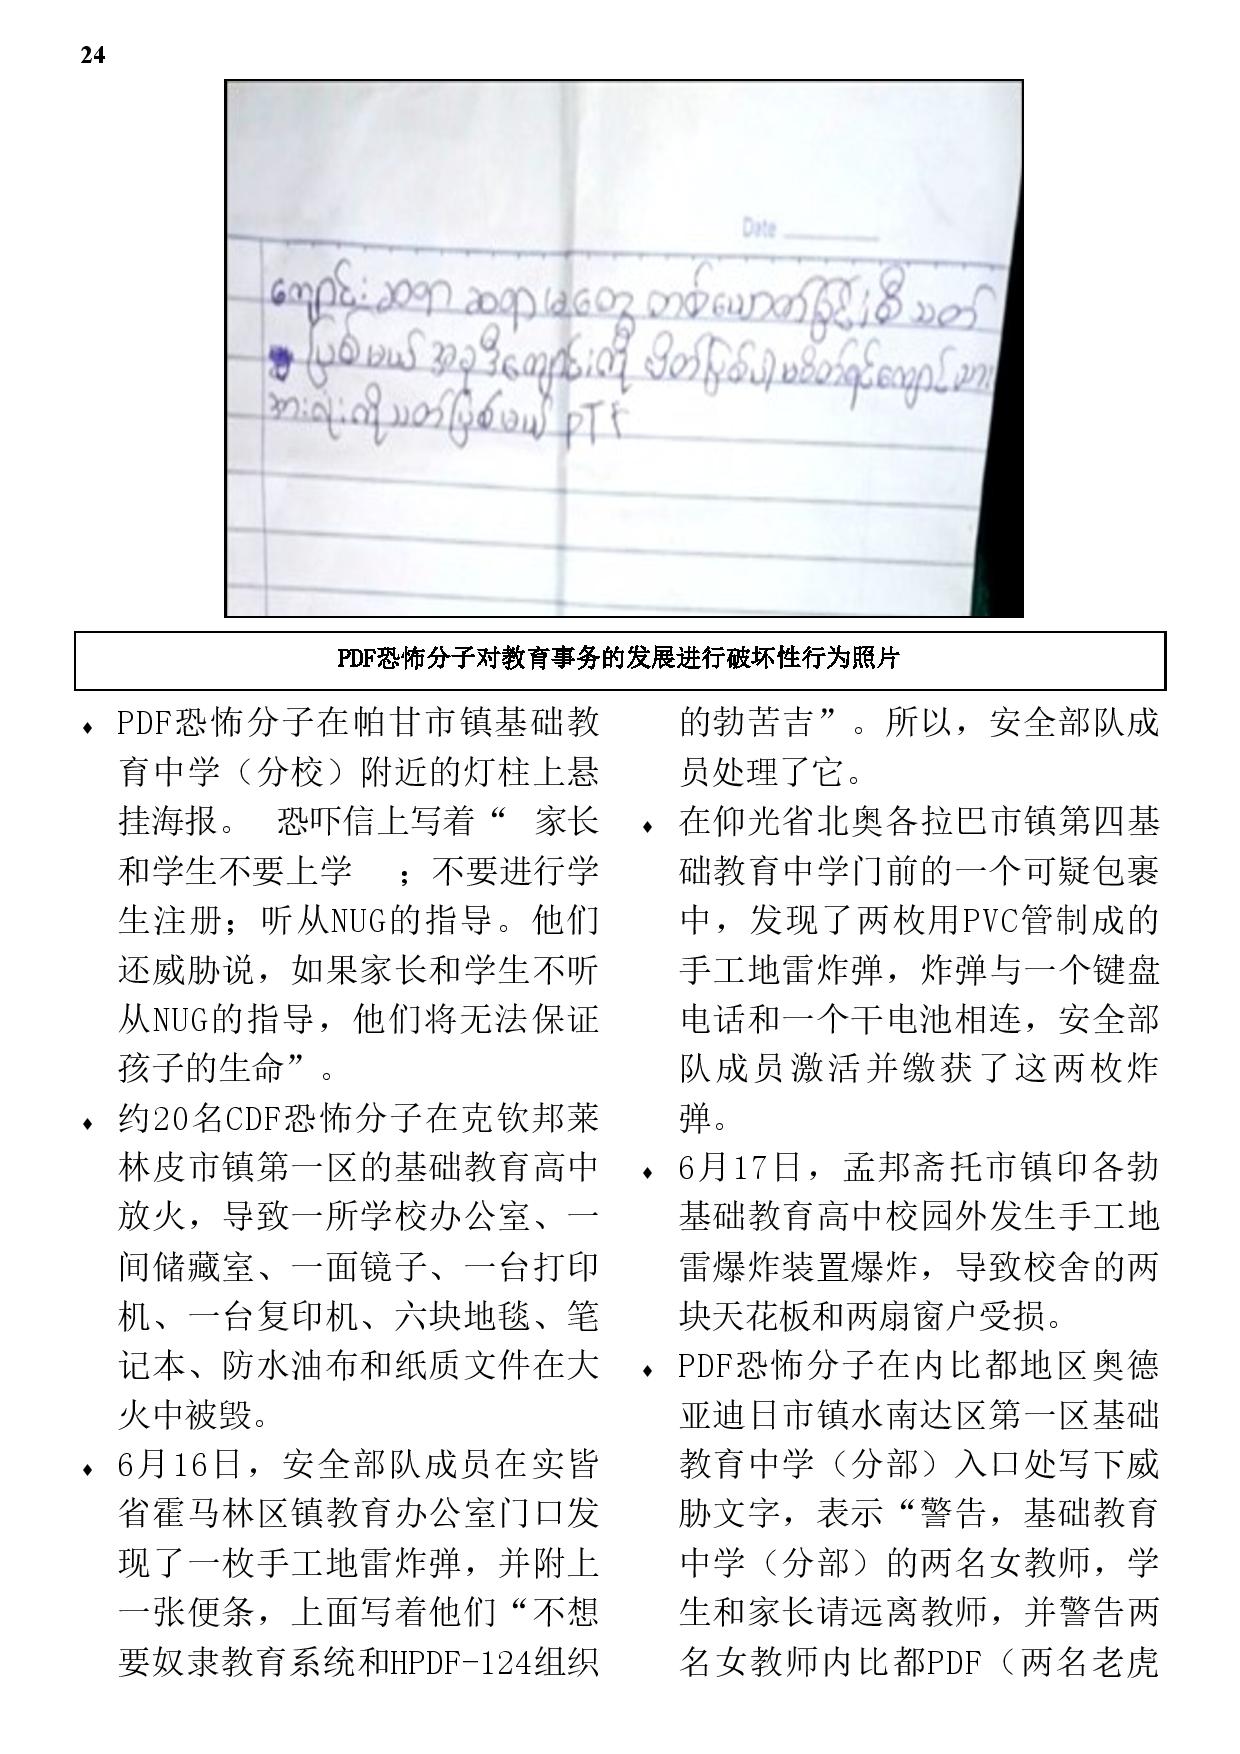 24
Date
ကျောင်းဆရာ ဆရာမတွေ တစ်ယောက်ပြီး စီ သတ်
ပြစ်မယ် အခုဒီကျောင်းကို ပိတ်ပြစ်ပါ မပိတ်ရင်ကျောင်သား
အားလုံးကိုသတ်ပြစ်မယ် PTF
PDF恐怖分子对教育事务的发展进行破坏性行为照片
⬧ PDF恐怖分子在帕甘市镇基础教
育中学（分校）附近的灯柱上悬
挂海报。 恐吓信上写着“ 家长
和学生不要上学 ；不要进行学
生注册；听从NUG的指导。他们
还威胁说，如果家长和学生不听
从NUG的指导，他们将无法保证
孩子的生命”。
⬧ 约20名CDF恐怖分子在克钦邦莱
林皮市镇第一区的基础教育高中
放火，导致一所学校办公室、一
间储藏室、一面镜子、一台打印
机、一台复印机、六块地毯、笔
记本、防水油布和纸质文件在大
火中被毁。
⬧ 6月16日，安全部队成员在实皆
省霍马林区镇教育办公室门口发
现了一枚手工地雷炸弹，并附上
一张便条，上面写着他们“不想
要奴隶教育系统和HPDF-124组织
的勃苦吉”。所以，安全部队成
员处理了它。
⬧ 在仰光省北奥各拉巴市镇第四基
础教育中学门前的一个可疑包裹
中，发现了两枚用PVC管制成的
手工地雷炸弹，炸弹与一个键盘
电话和一个干电池相连，安全部
队成员激活并缴获了这两枚炸
弹。
⬧ 6月17日，孟邦斋托市镇印各勃
基础教育高中校园外发生手工地
雷爆炸装置爆炸，导致校舍的两
块天花板和两扇窗户受损。
⬧ PDF恐怖分子在内比都地区奥德
亚迪日市镇水南达区第一区基础
教育中学（分部）入口处写下威
胁文字，表示“警告，基础教育
中学（分部）的两名女教师，学
生和家长请远离教师，并警告两
名女教师内比都PDF（两名老虎